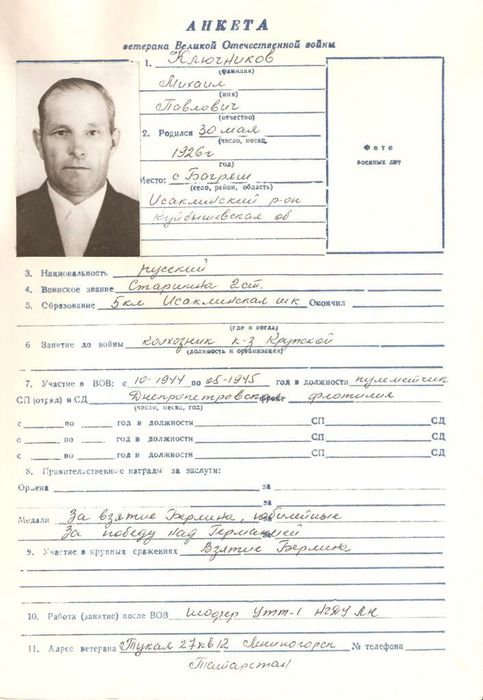 АНКЕТА
ветерана Великой Отечественной войны
1. Ключников
(фамилия)
Михаил
(имя)
Павлович
(отчество)
2. Родился 30 мая
(число, месяц,
1926г
год)
Место: с Багряш
(село, район, область)
Исаклинский р-он
Куйбышевская об
Фото
военных лет
3. Национальность русский
4. Воинское звание Старшина 2 ст.
5. Образование 5 кл Исаклинская шк Окончил
(где и когда)
6 Занятие до войны колхозник к-з Крупской
(должность и организация)
7. Участие в ВОВ: с 10-1944 по 05-1945 год в должности пулеметчик
СП (отряд) и СД Днепропетровская флотилия
(число, месяц, год)
с по год и должности СП СД
с по год и должности СП СД
с по год и должности СП СД
8. Правительственные награды за заслуги:
Ордена за
за
Медали За взятие Берлина, юбилейные
За победу над Германией
9. Участие в крупных сражениях Взятие Берлина
10. Работа (занятие) после ВОВ шофер УТТ-1 НГДУ ЛН
11. Адрес ветерана Тукая 27 кв 12 Лениногорск № телефона
Татарстан